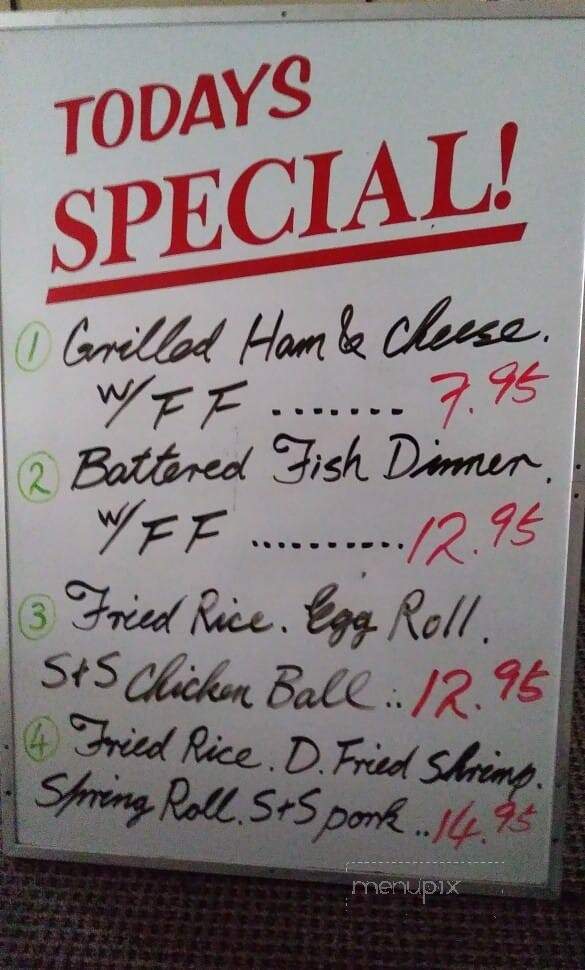 TODAYS
SPECIAL!
1 Grilled Ham & Cheese.
w/ F F ....... 7.95
2 Battered Fish Dinner.
w/ F F .......... 12.95
3 Fried Rice. Egg Roll.
S+S Chicken Ball .. 12.95
4 Fried Rice. D. Fried Shrimp.
Spring Roll. S+S pork .. 14.95
menupix